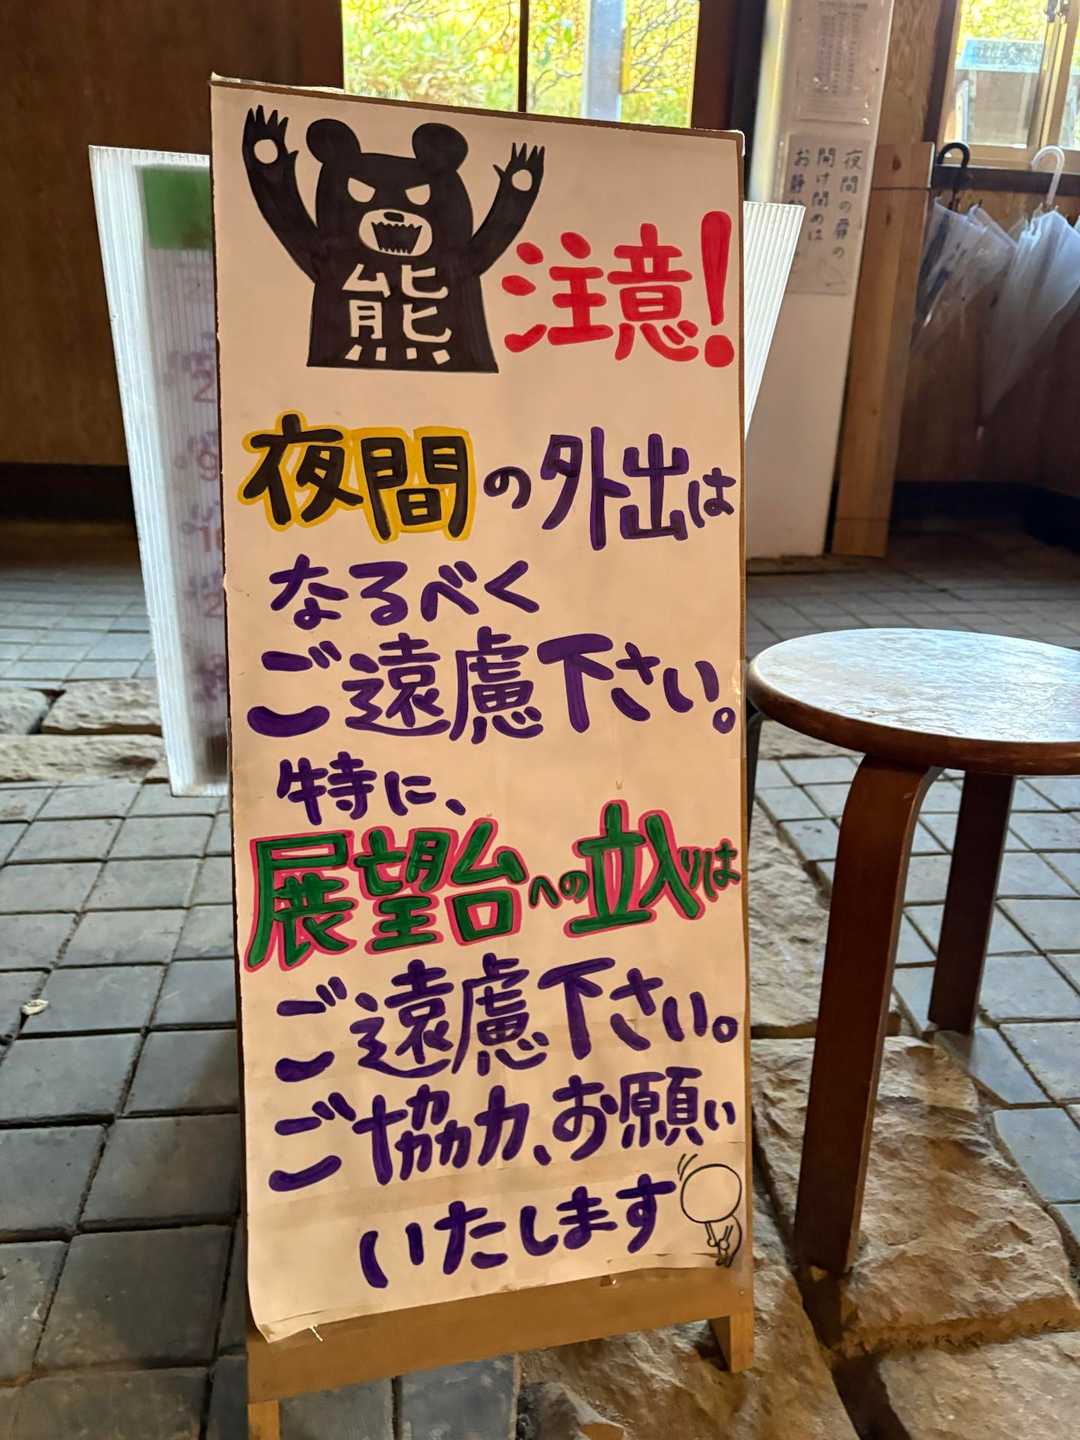 熊
注意!
夜間の外出は
なるべく
ご遠慮下さい。
特に、
展望台への立入りは
ご遠慮下さい。
ご協力、お願い
いたします
夜間の扉の
開け閉めは
お静